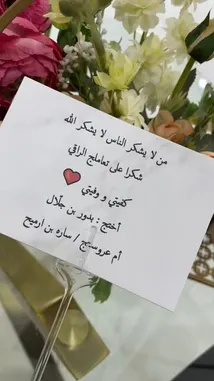 من لا يشكر الناس لا يشكر الله
شكرا على تعاملج الراقي
كفيتي و وفيتي
أختج : بدور بن جلال
أم عروستج / ساره بن ارميح